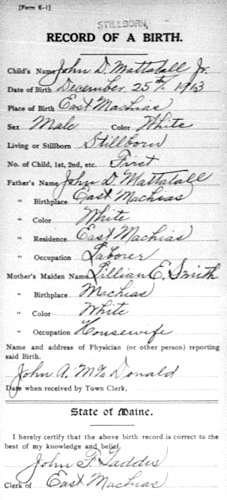 [Form K-1]
STILLBORN
RECORD OF A BIRTH.
Child's Name John D. Mattatall Jr.
Date of Birth December 25th 1913
Place of Birth East Machias
Sex Male Color White
Living or Stillborn Stillborn
No. of Child, 1st, 2nd, etc. First
Father's Name John D. Mattatall
" Birthplace East Machias
" Color White
" Residence East Machias
" Occupation Laborer
Mother's Maiden Name Lillian E. Smith
" Birthplace Machias
" Color White
" Occupation Housewife
Name and address of Physician (or other person) reporting
said Birth.
John A. McDonald
Date when received by Town Clerk,
State of Maine.
I hereby certify that the above birth record is correct to the
best of my knowledge and belief.
John F. Gaddis
Clerk of East Machias